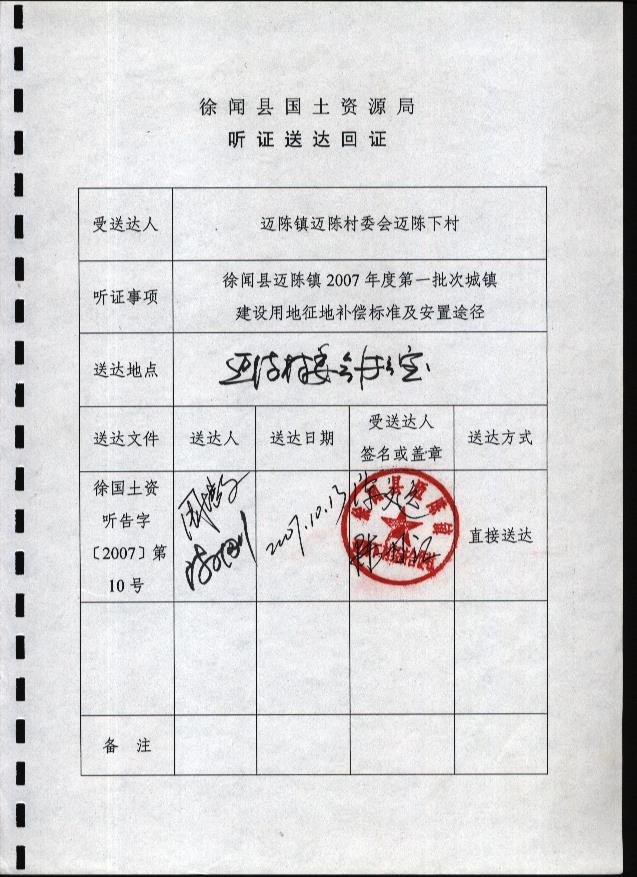 徐闻县国土资源局
听证送达回证
受送达人
迈陈镇迈陈村委会迈陈下村
听证事项
徐闻县迈陈镇 2007 年度第一批次城镇
建设用地征地补偿标准及安置途径
送达地点
迈陈村委会办公室
送达文件
送达人
送达日期
受送达人
签名或盖章
送达方式
徐国土资
听告字
〔2007〕第
10 号
2007.10.13
直接送达
备 注